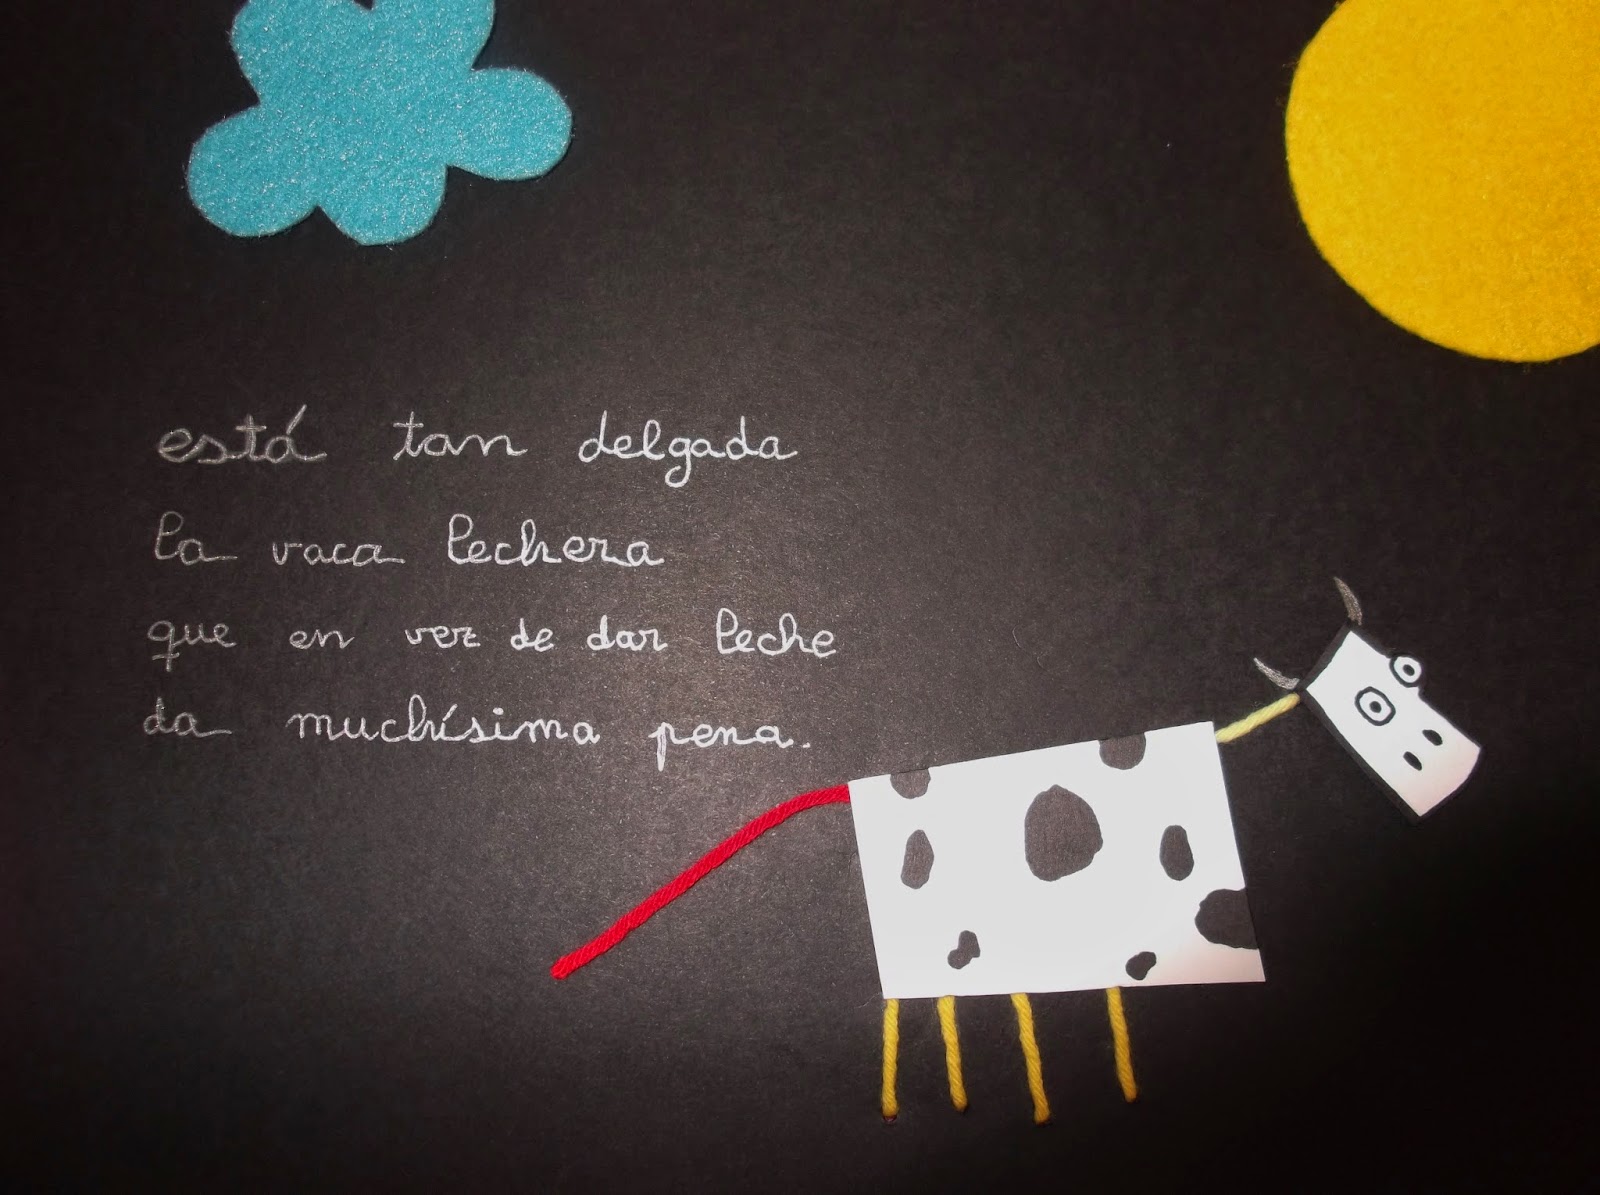 está tan delgada
la vaca lechera
que en vez de dar leche
da muchísima pena.